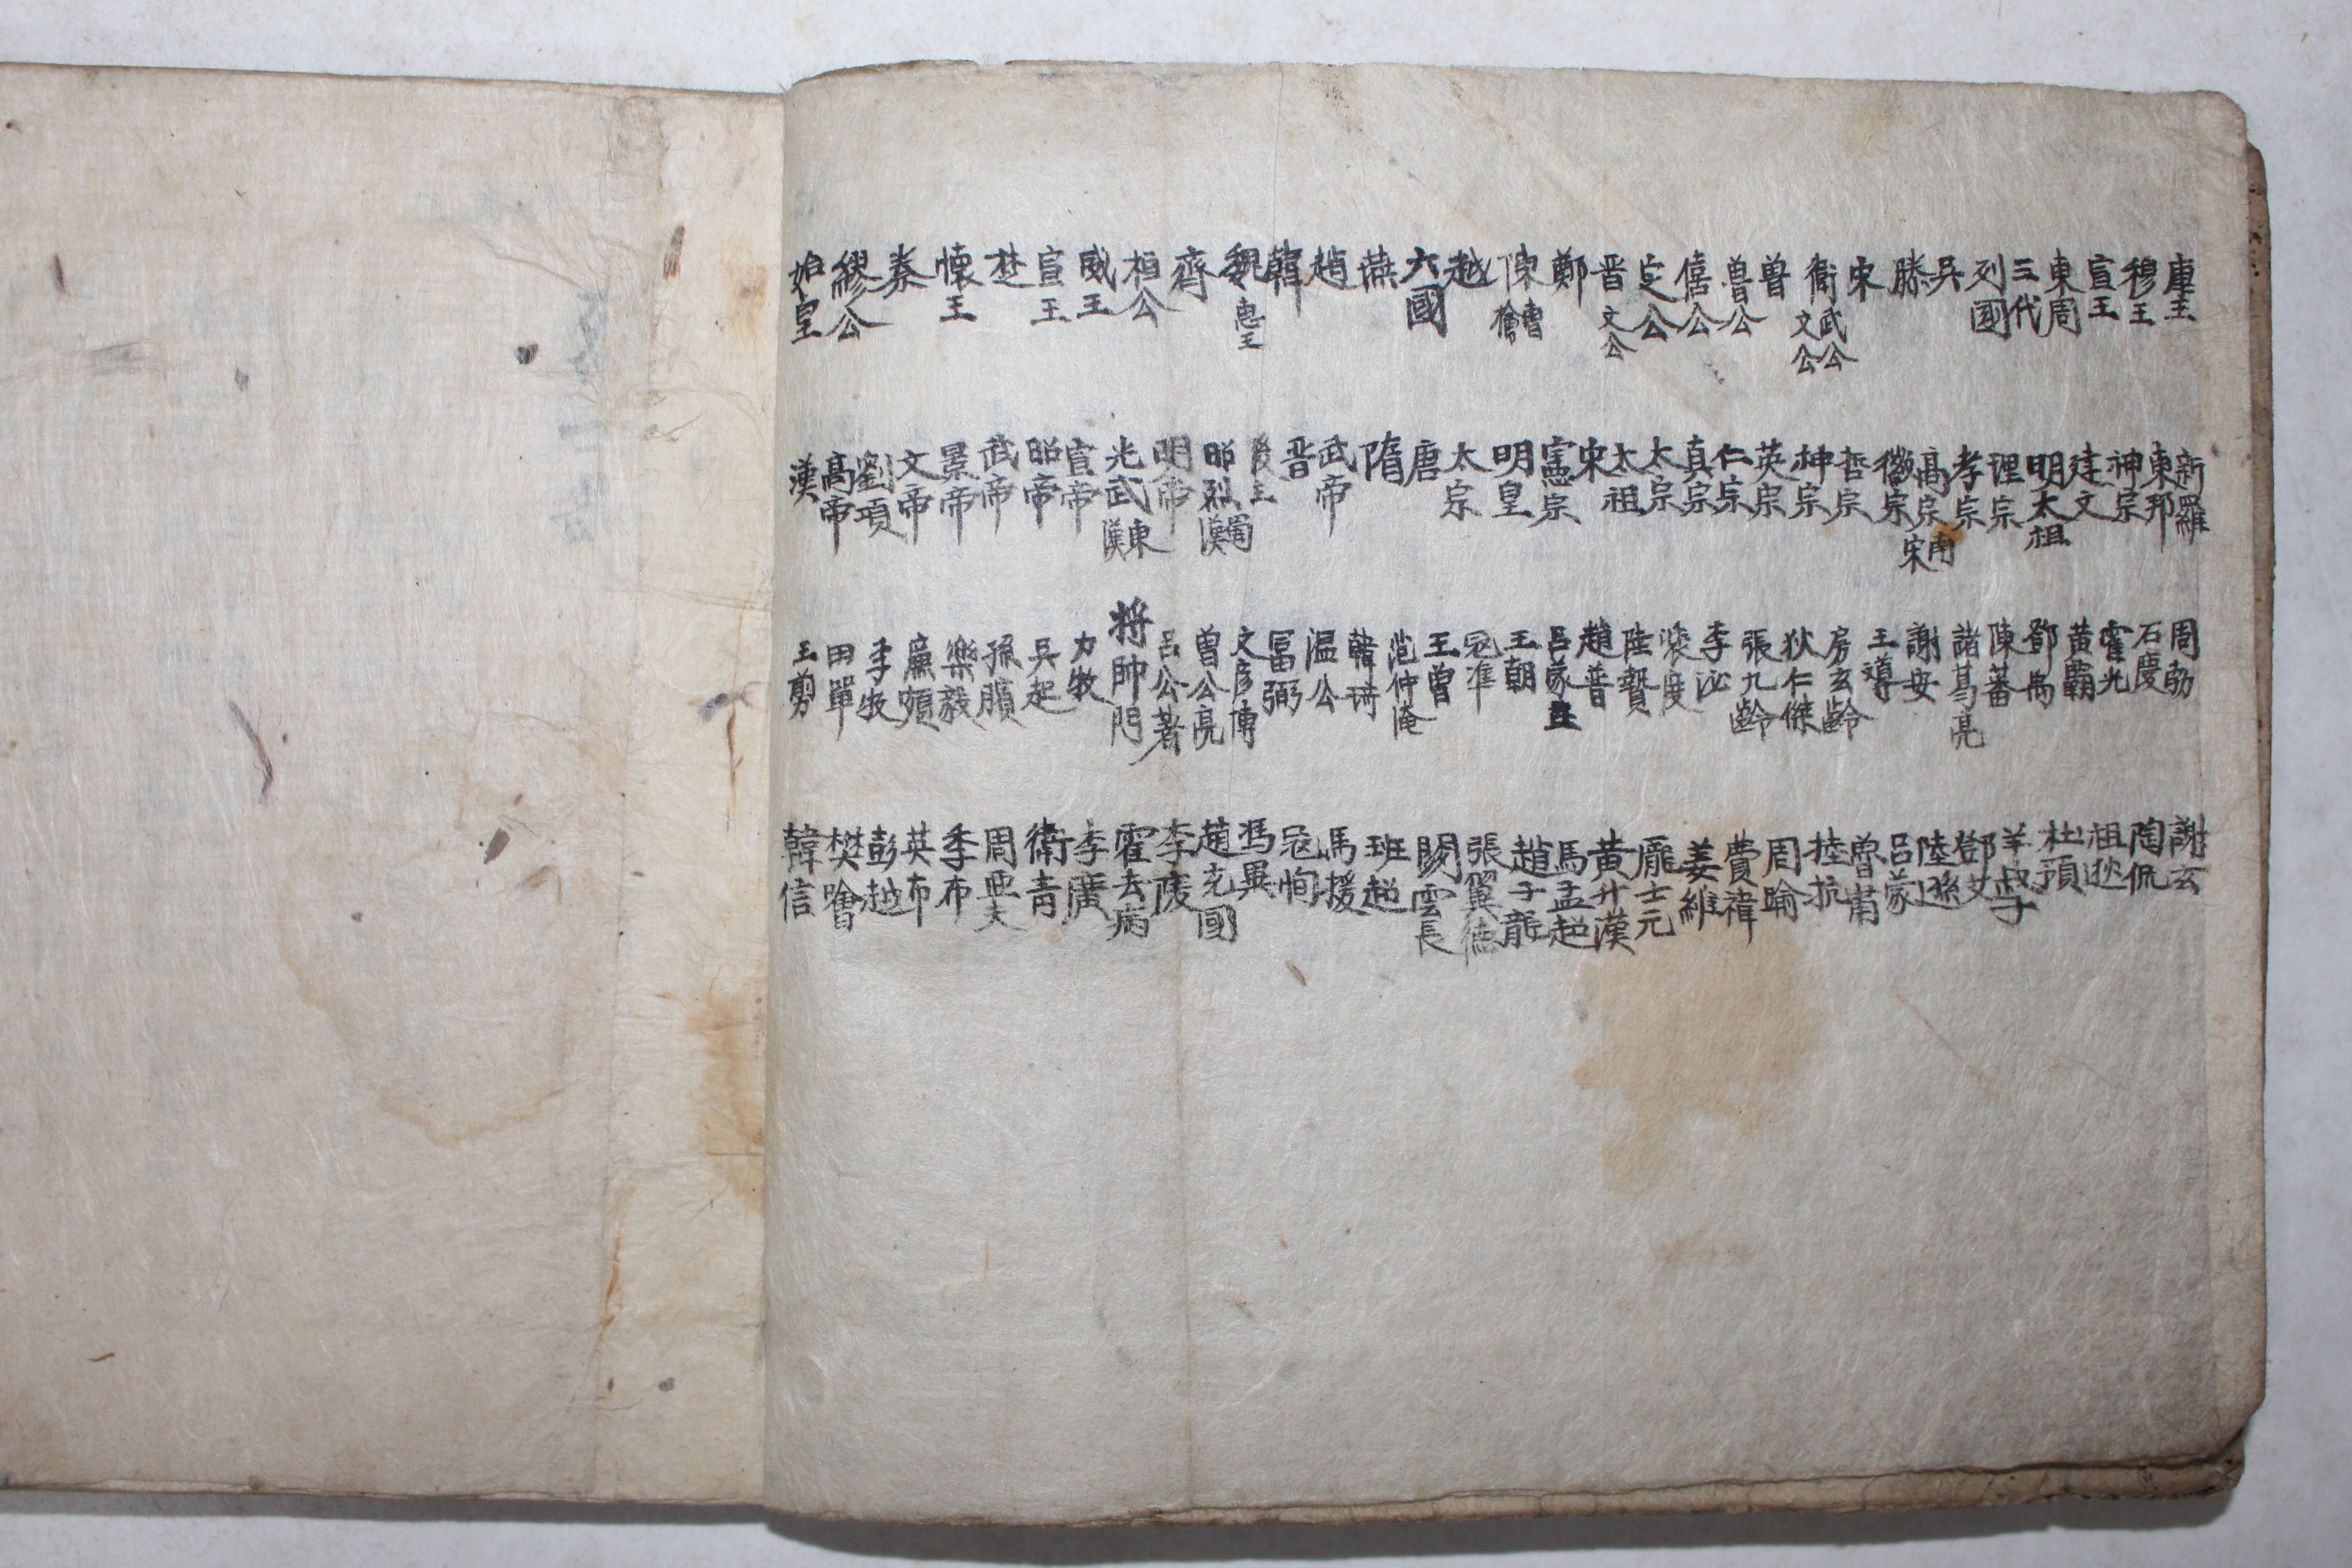 庫王
穆王
宣王
東周
三代
列國
吳
滕
宋
衛武公文公
曾
魯公
僖公
定公
晋文公
鄭
陳曹檜
越
六國
燕
趙
韓
魏惠王
齊
桓公
威王
宣王
楚
懷王
秦
繆公
始皇
漢
高帝
劉項
文帝
景帝
武帝
昭帝
宣帝
光武東漢
明帝
昭烈蜀漢
後主
晋
武帝
隋
唐
太宗
明皇
憲宗
宋
太祖
太宗
真宗
仁宗
英宗
神宗
哲宗
徽宗
高宗南宋
孝宗
理宗
明太祖
建文
神宗
東邦
新羅
周勃
石慶
霍光
黃霸
鄧禹
陳蕃
諸葛亮
謝安
王導
房玄齡
狄仁傑
張九齡
李泌
裴度
陸贄
趙普
呂蒙正
王朝
冦準
王曾
范仲淹
韓琦
温公
富弼
文彦博
曾公亮
呂公著
將帥門
力牧
吳起
孫臏
樂毅
廉頗
李牧
田單
王剪
韓信
樊噲
彭越
英布
季布
周亞夫
衛青
李廣
霍去病
李陵
趙充國
馮異
冦恂
馬援
班超
関雲長
張翼德
趙子龍
馬孟起
黃升漢
龐士元
姜維
費禕
周瑜
陸抗
魯肅
呂蒙
陸遜
鄧艾
羊叔子
杜預
祖逖
陶侃
謝玄